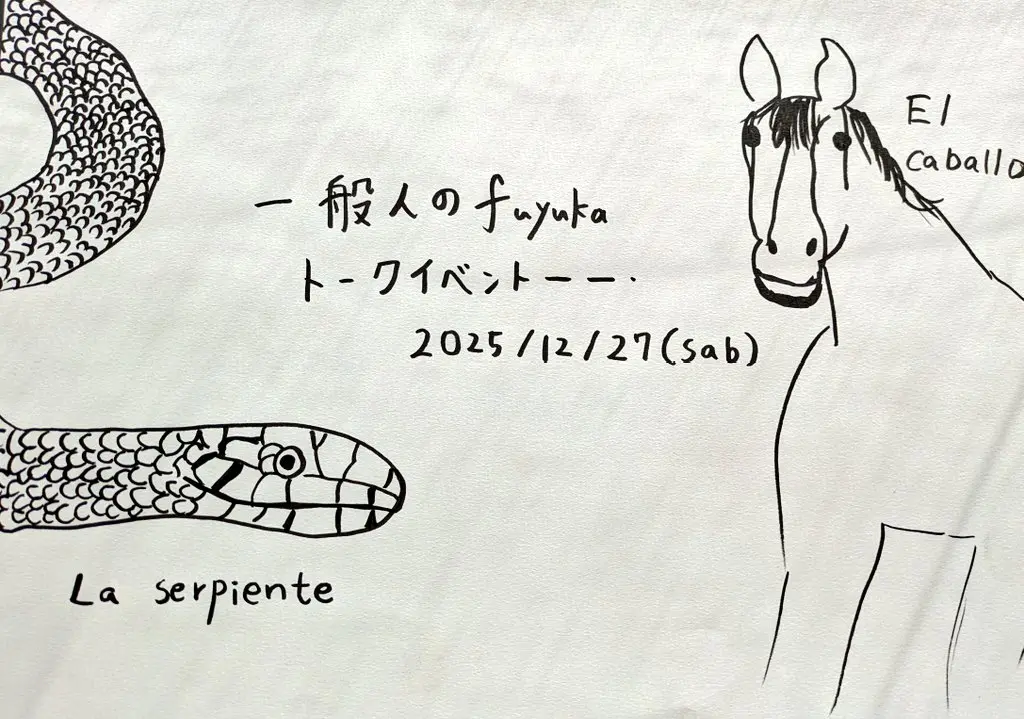 El
caballo
一般人のfuyuka
トークイベントーー.
2025/12/27(sab)
La serpiente